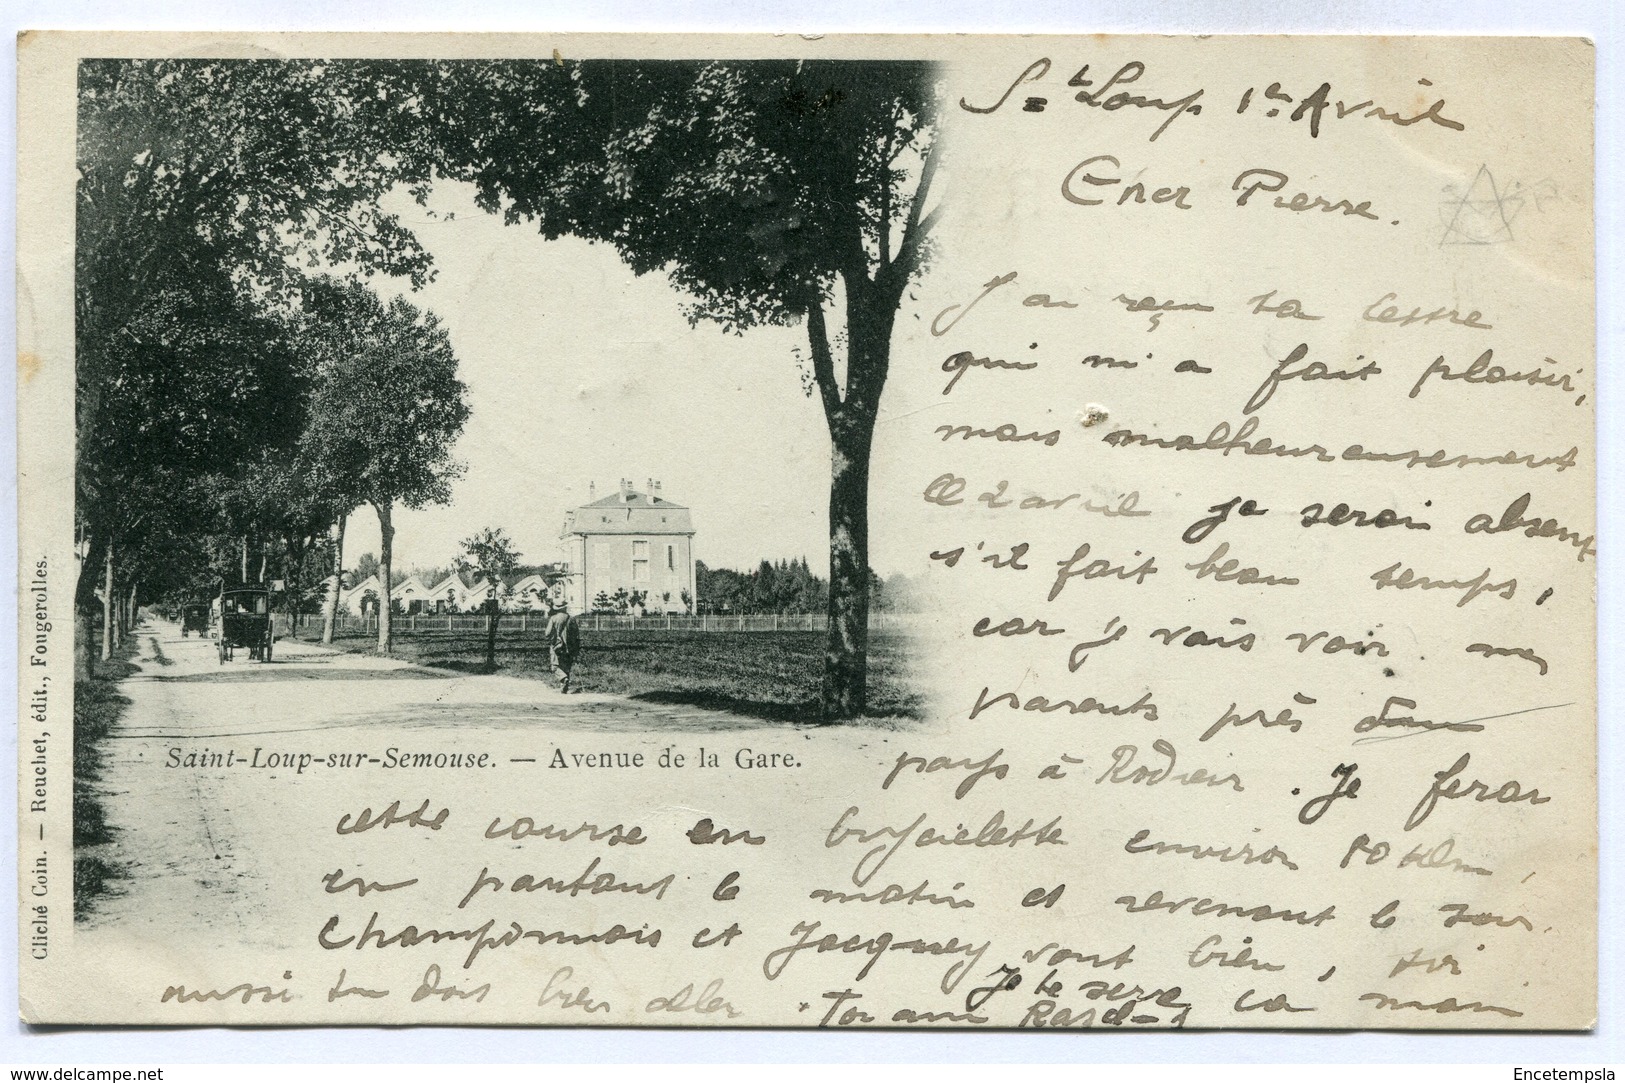 St Loup 1er Avril
Cher Pierre.
J'ai reçu ta lettre
qui m'a fait plaisir,
mais malheureusement
le 2 avril je serai absent
s'il fait beau temps,
car je vais voir mes
parents près
pays à . Je ferai
cette course en bysciclette environ 80 klm,
en partant le matin et revenant le soir.
Champonnois et Jacquey vont bien, toi
aussi tu dois bien aller. Je te serre la main
Ton ami
Saint-Loup-sur-Semouse. — Avenue de la Gare.
Cliché Coin. — Reuchet, édit., Fougerolles.
www.delcampe.net
Encetempsla